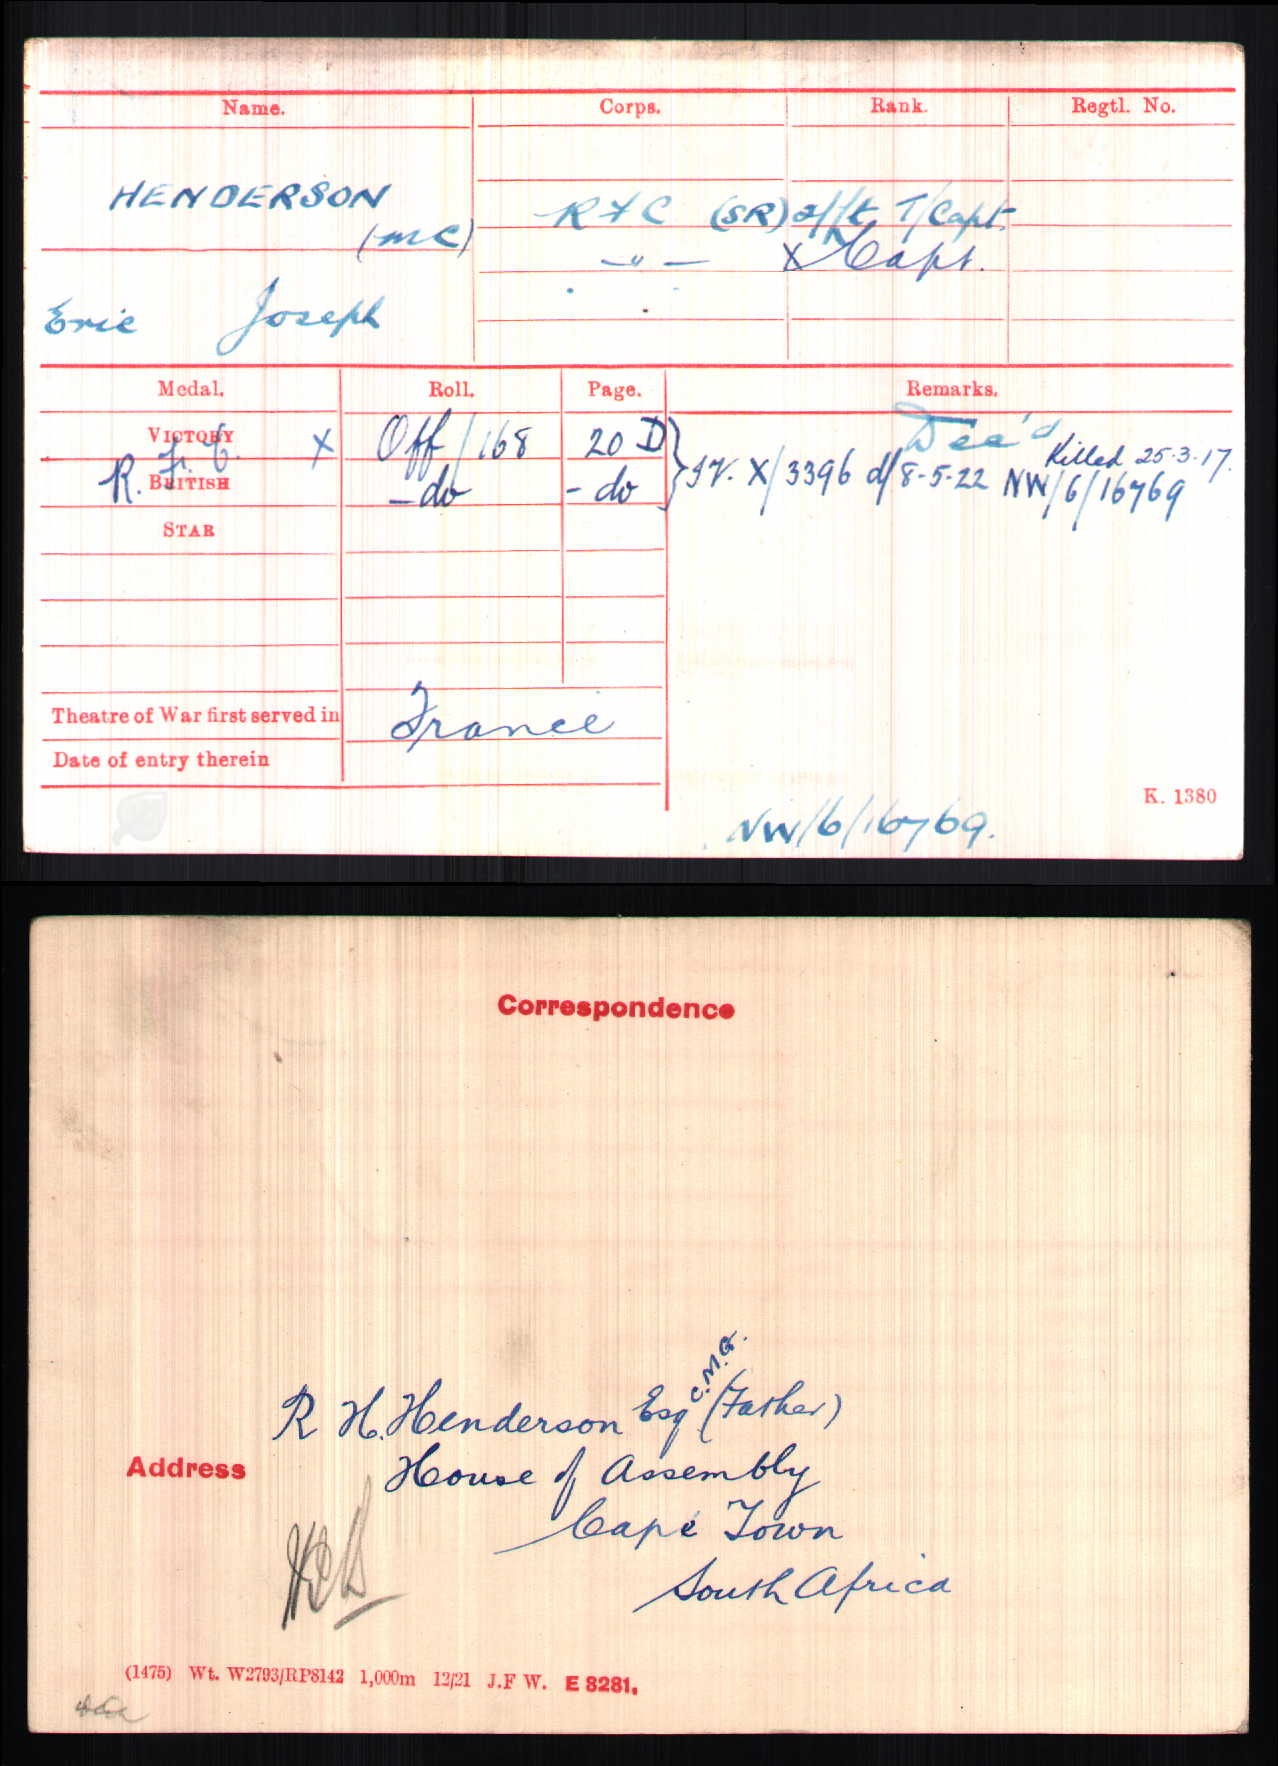 Name. Corps. Rank. Regtl. No.
HENDERSON
(MC)
Eric Joseph
RFC (SR) 2/Lt. T/Capt.
-"- X Capt.
Medal. Roll. Page. Remarks.
VICTORY X Off/168 20 D
R. F. C.
BRITISH -do -do
Dec'd Killed 25.3.17.
IV. X/3396 d/8-5-22 NW/6/16769
STAR
Theatre of War first served in France
Date of entry therein
K. 1380
NW/6/16769.
Correspondence
R H. Henderson Esq C.M.G. (Father)
Address House of Assembly
Cape Town
South Africa
(1475) Wt. W2793/RP8142 1,000m 12/21 J.F W. E 8281.